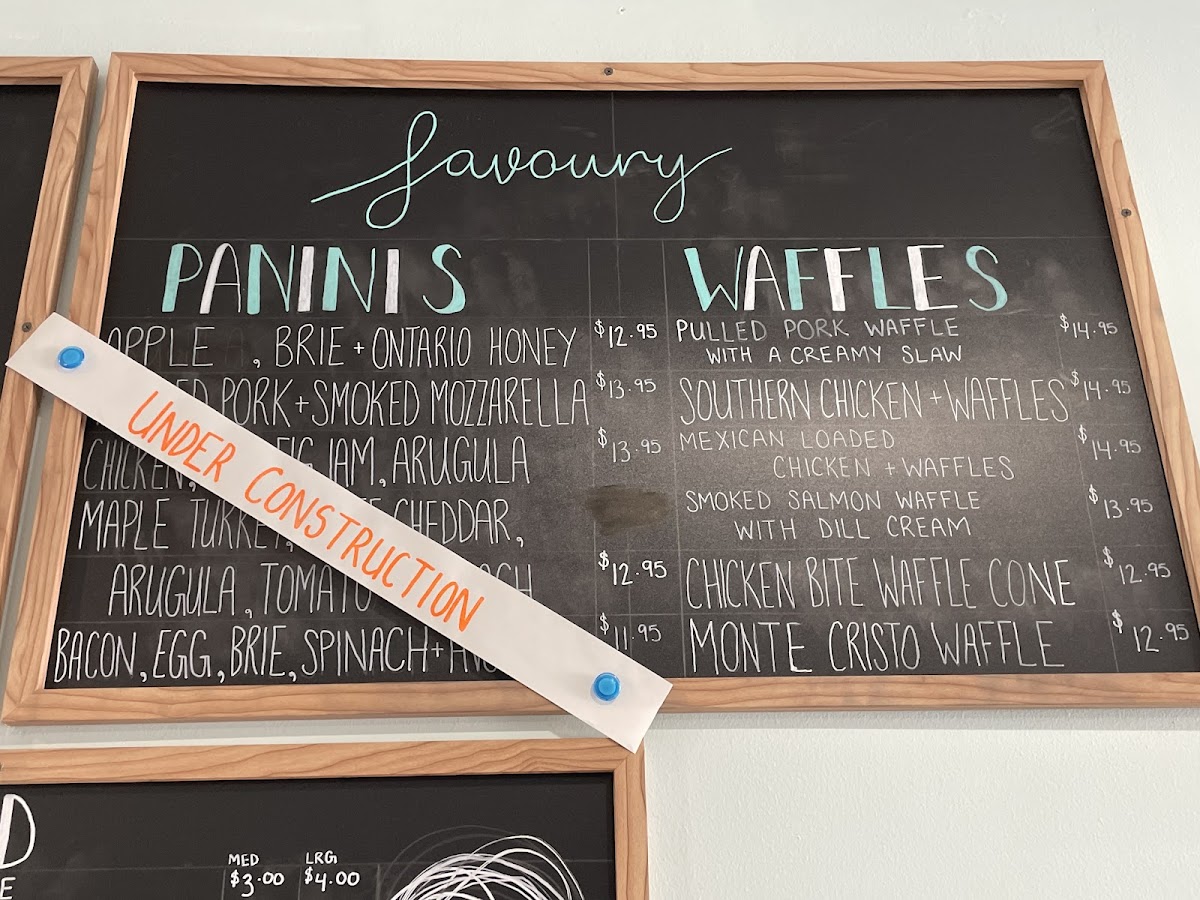 Savoury
PANINIS
APPLE , BRIE + ONTARIO HONEY $12.95
PORK + SMOKED MOZZARELLA $13.95
CHICKEN, FIG JAM, ARUGULA $13.95
MAPLE TURKEY, CHEDDAR,
ARUGULA, TOMATO $12.95
BACON, EGG, BRIE, SPINACH + $11.95
WAFFLES
PULLED PORK WAFFLE $14.95
WITH A CREAMY SLAW
SOUTHERN CHICKEN + WAFFLES $14.95
MEXICAN LOADED
CHICKEN + WAFFLES $14.95
SMOKED SALMON WAFFLE
WITH DILL CREAM $13.95
CHICKEN BITE WAFFLE CONE $12.95
MONTE CRISTO WAFFLE $12.95
UNDER CONSTRUCTION
MED LRG
$3.00 $4.00